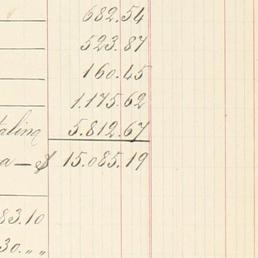 682.54
523.87
160.45
1.175.62
taling 5.812.67
a — $ 15.085.19
83.10
30. „ „